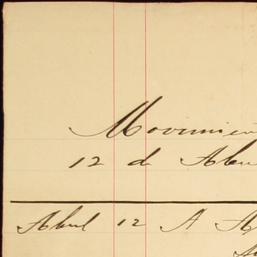 Movimien
12 de Abri
Abril 12 A A